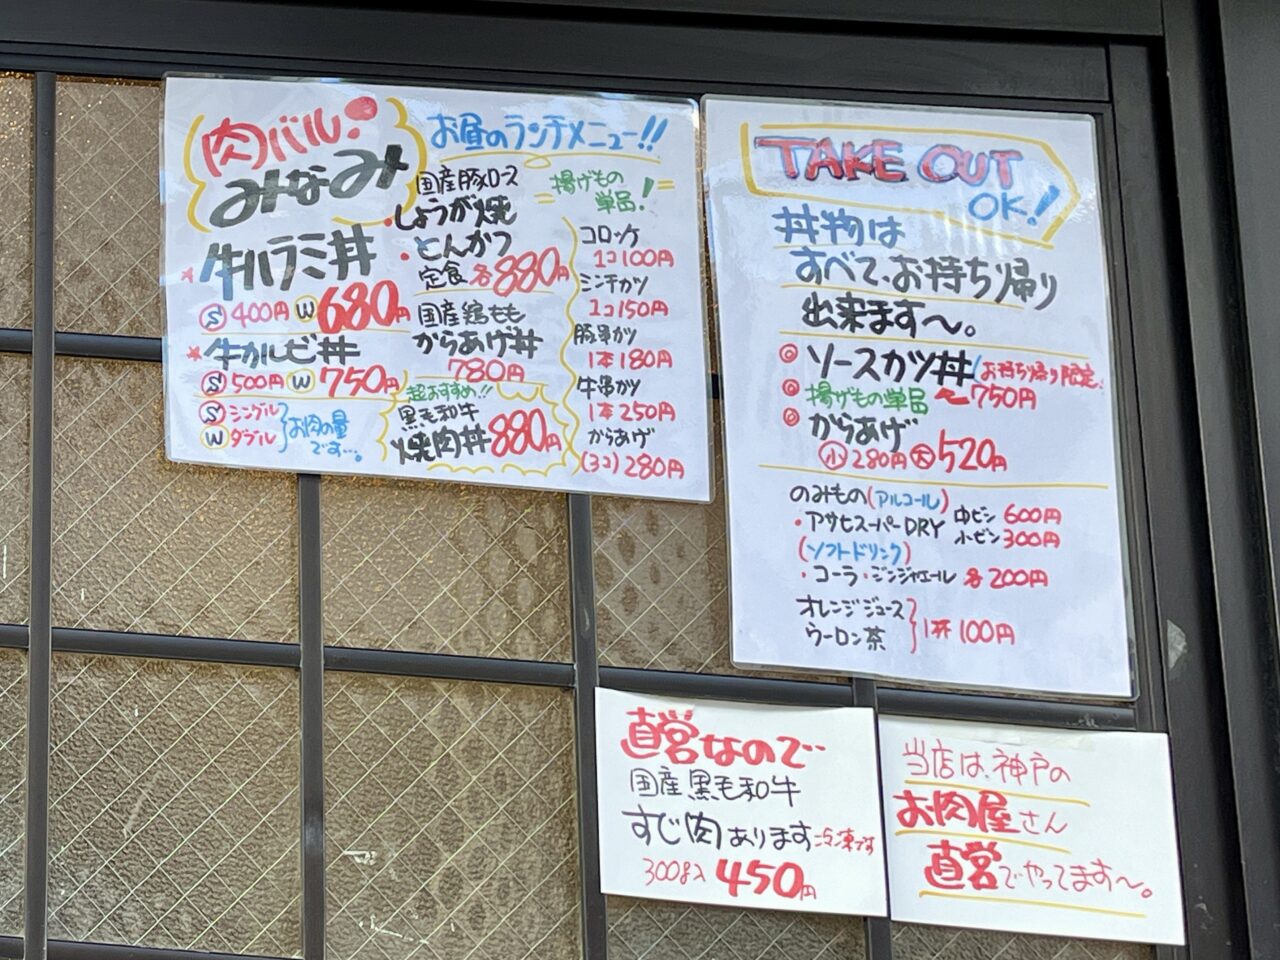 肉バル
みなみ
お昼のランチメニュー!!
牛ハラミ丼
S 400円 W 680円
牛カルビ丼
S 500円 W 750円
S シングル
W ダブル
お肉の量
です…。
国産豚ロース
・しょうが焼
・とんかつ
定食 各880円
国産鶏もも
からあげ丼
780円
超おすすめ!!
黒毛和牛
焼肉丼 880円
揚げもの
単品!
コロッケ
1コ100円
ミンチカツ
1コ150円
豚串かツ
1本180円
牛串かツ
1本250円
からあげ
(3コ) 280円
TAKE OUT
OK!
丼物は
すべて、お持ち帰り
出来ます〜。
◎ソースカツ丼(お持ち帰り限定)
◎揚げもの単品 750円
◎からあげ
小280円 大520円
のみもの(アルコール)
・アサヒスーパーDRY 中ビン 600円
小ビン 300円
(ソフトドリンク)
・コーラ・ジンジャエール 各200円
オレンジジュース
ウーロン茶
1杯100円
直営なので‥
国産黒毛和牛
すじ肉あります
300g入 450円
当店は、神戸の
お肉屋さん
直営でやってます〜。